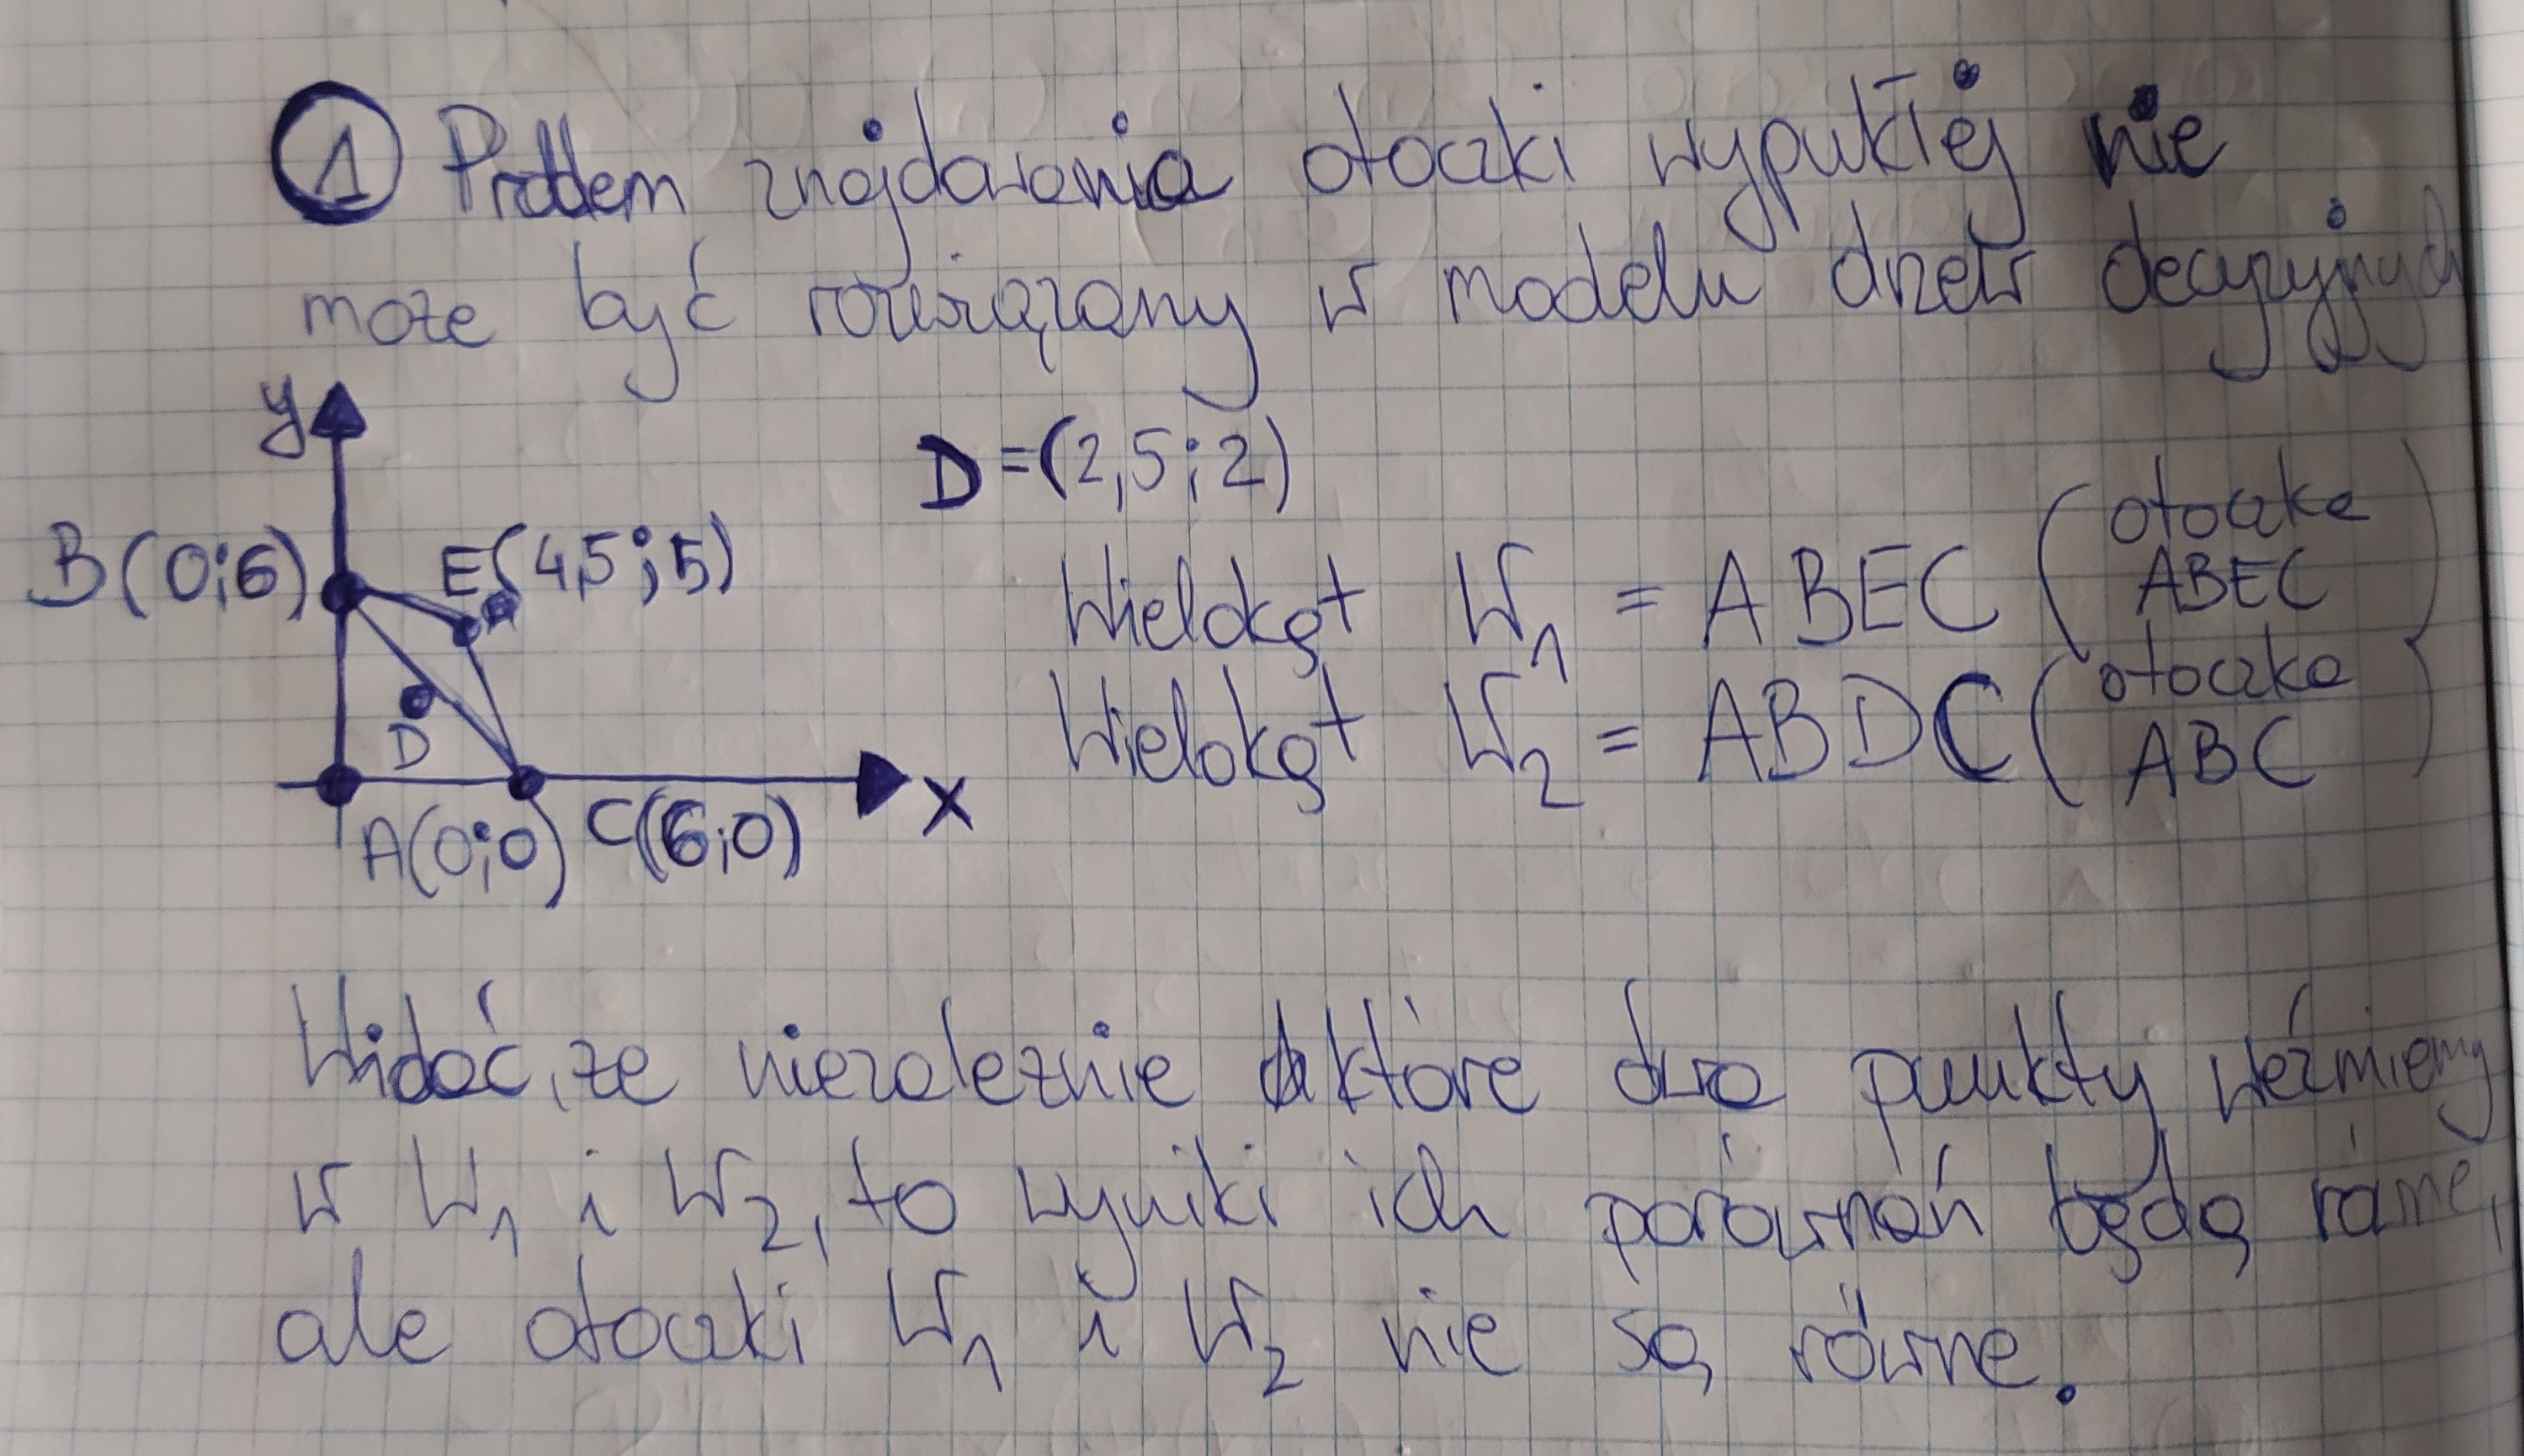 1 Problem znajdowania otoczki wypukłej nie
może być rozwiązany w modelu drzew decyzyjnych
y
D=(2,5;2)
B(0;6) E(4,5;5)
Wielokąt W1 = ABEC (otoczka ABEC)
Wielokąt W2 = ABDC (otoczka ABC)
D
x
A(0;0) C(6;0)
Widać, że niezależnie które dwa punkty weźmiemy
w W1 i W2, to wyniki ich porównań będą równe,
ale otoczki W1 i W2 nie są równe.